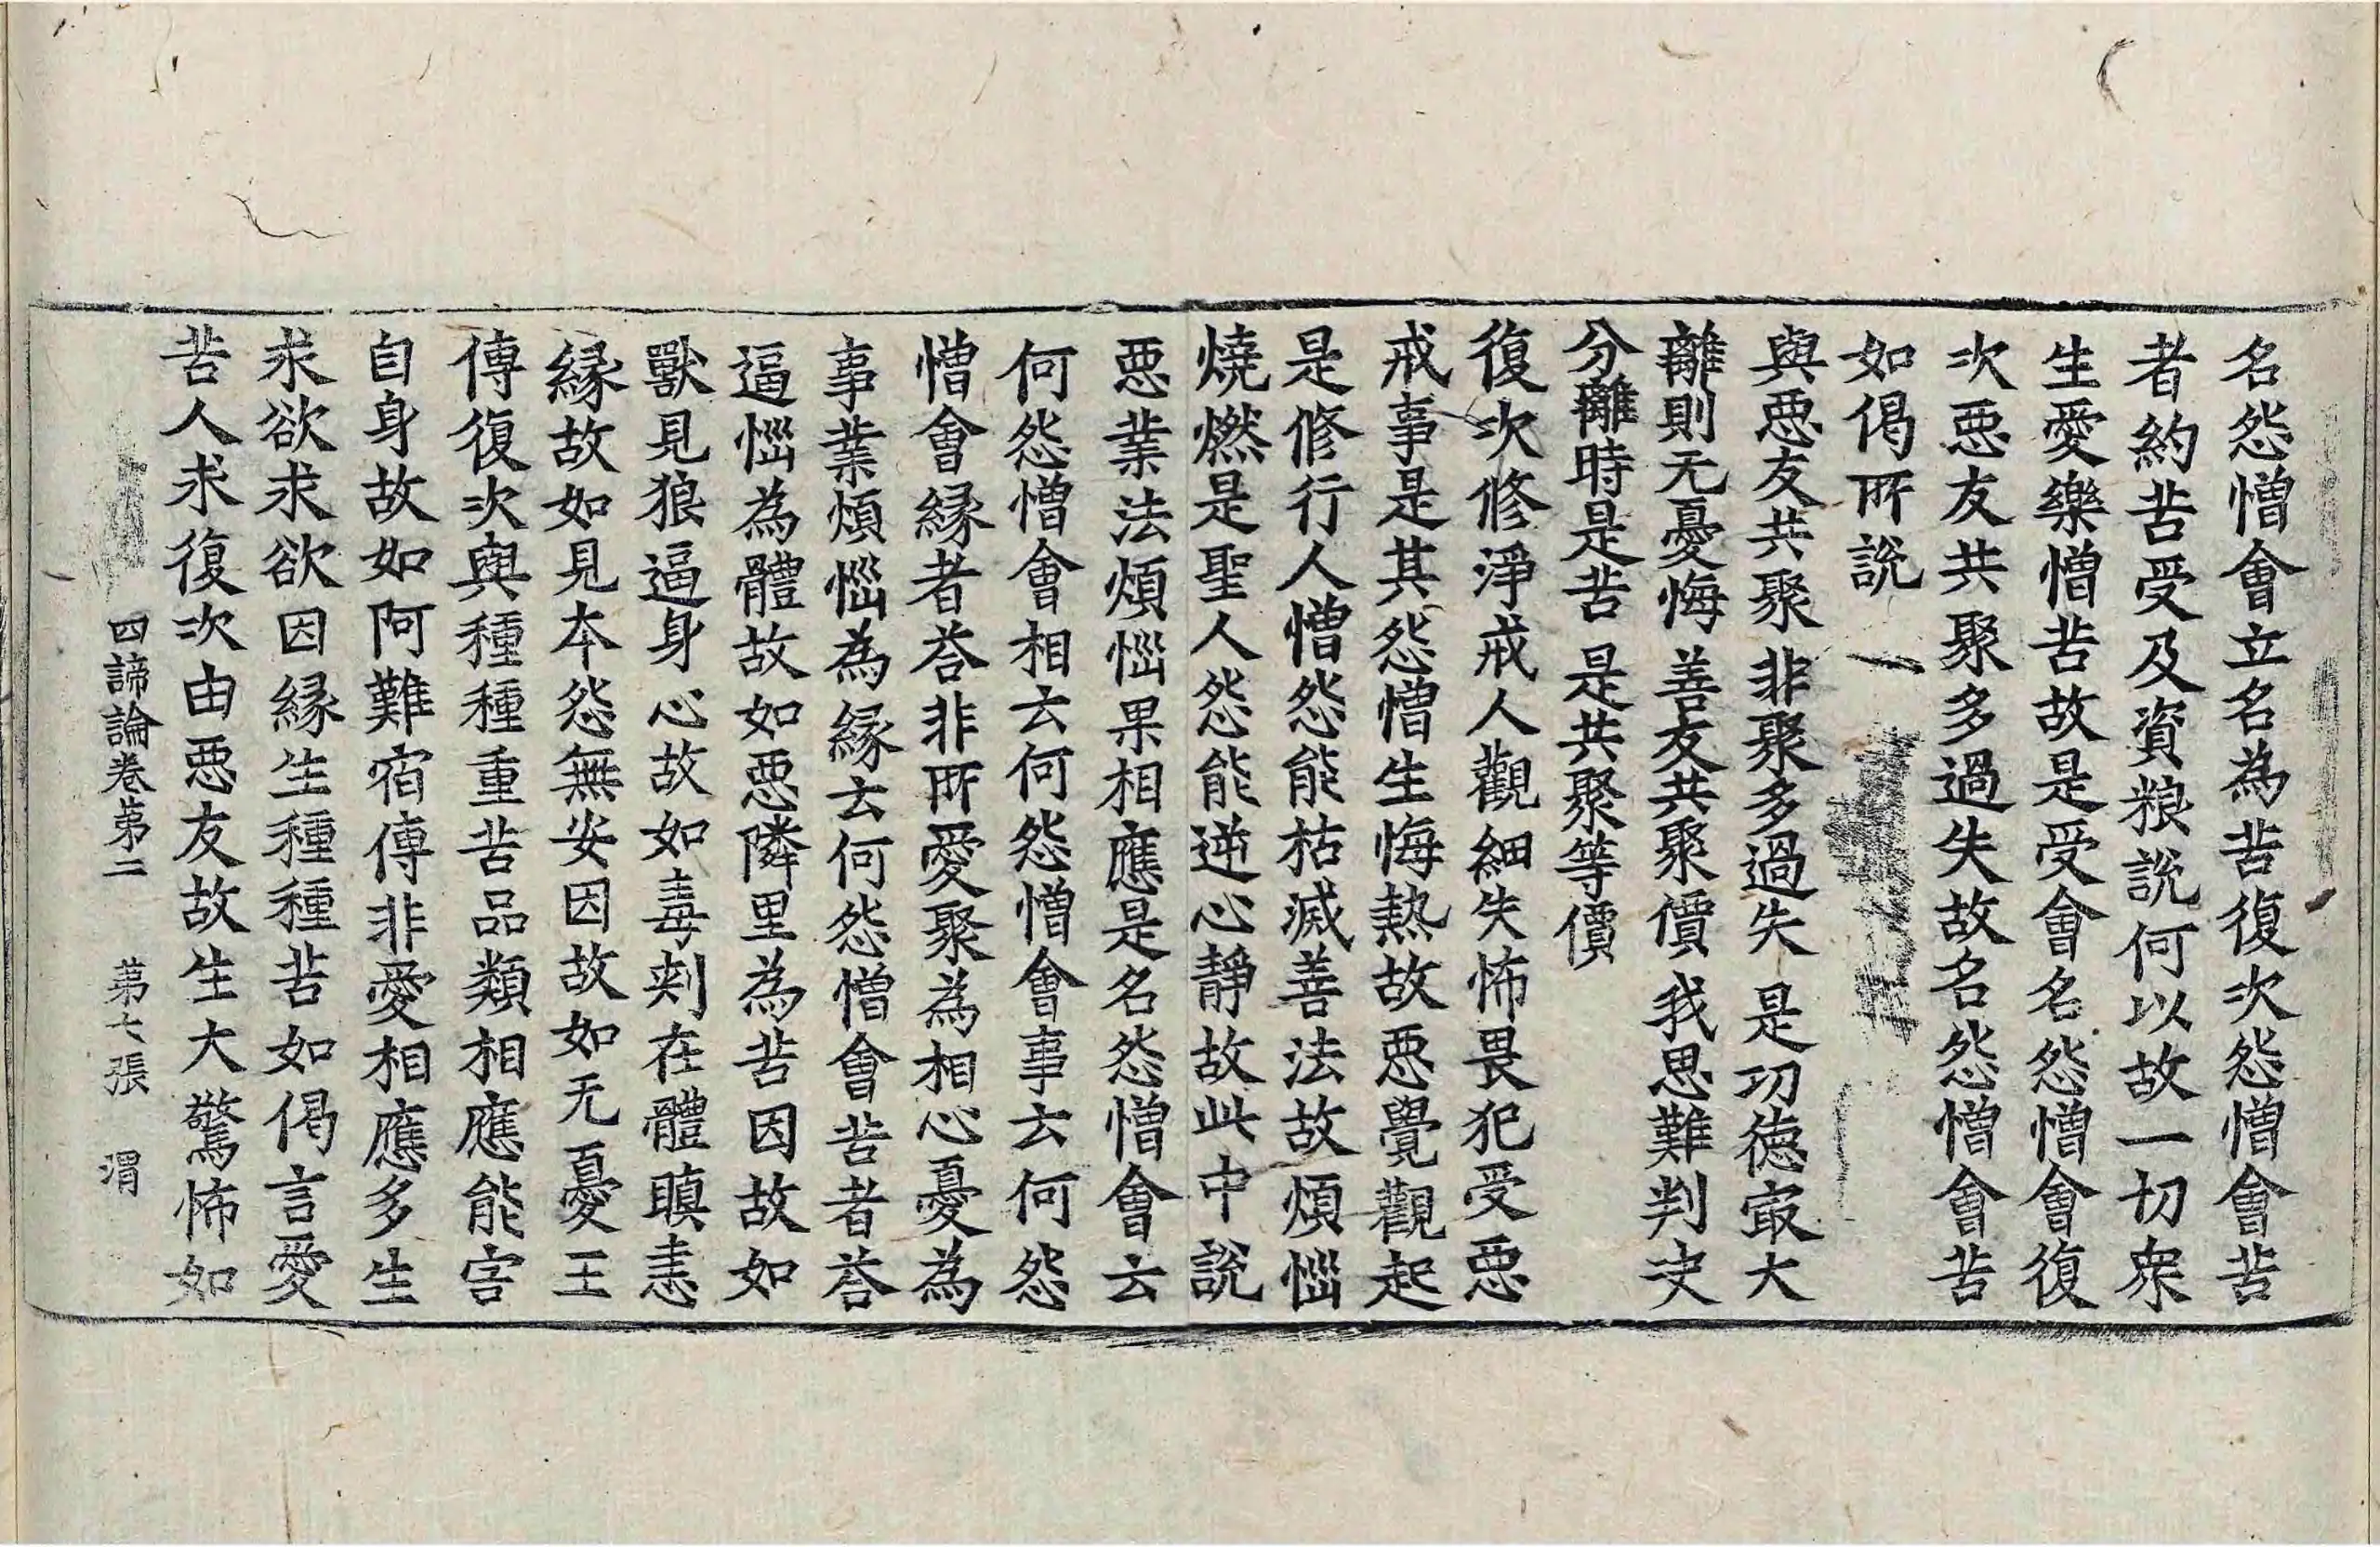 名怨憎會立名為苦復次怨憎會苦
者約苦受及資粮說何以故一切衆
生愛樂憎苦故是受會名怨憎會復
次惡友共聚多過失故名怨憎會苦
如偈所說
與惡友共聚 非聚多過失 是功德冣大
離則无憂悔 善友共聚價 我思難判决
分離時是苦 是共聚等價
復次修淨戒人觀細失怖畏犯受惡
戒事是其怨憎生悔熱故惡覺觀起
是修行人憎怨能枯滅善法故煩惱
燒燃是聖人怨能逆心靜故此中說
惡業法煩惱果相應是名怨憎會云
何怨憎會相云何怨憎會事云何怨
憎會緣者荅非所愛聚為相心憂為
事業煩惱為緣云何怨憎會苦者荅
逼惱為體故如惡隣里為苦因故如
獸見狼逼身心故如毒刾在體瞋恚
緣故如見本怨無安因故如无憂王
傳復次與種種重苦品類相應能害
自身故如阿難宿傳非愛相應多生
求欲求欲因緣生種種苦如偈言愛
苦人求復次由惡友故生大驚怖如
四諦論卷第二 第七張 渭